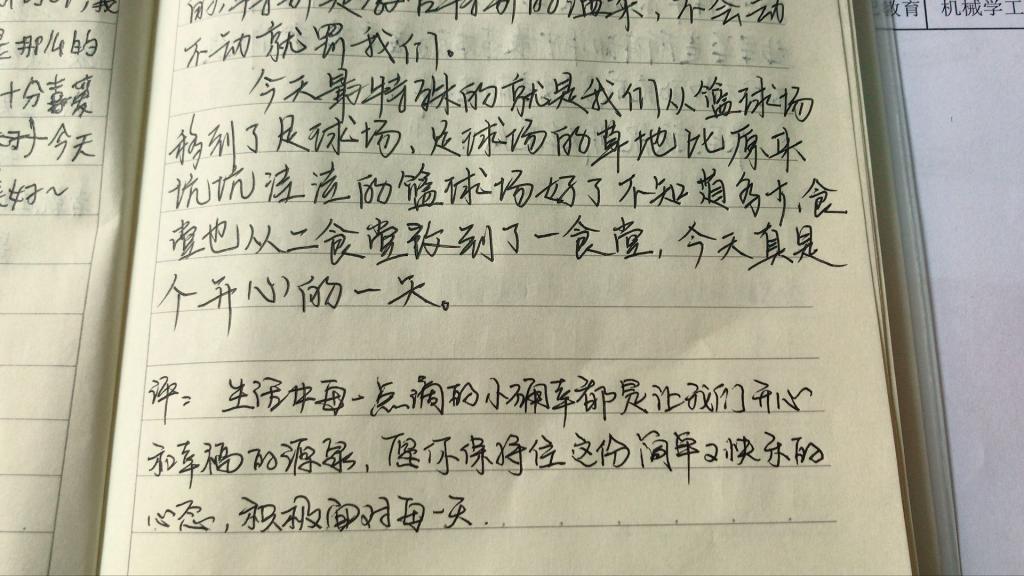 十分喜爱
今天
教育 机械学工
不动就罚我们。
今天最特殊的就是我们从篮球场
移到了足球场、足球场的草地比原来
坑坑洼洼的篮球场好了不知道多少,食
堂也从二食堂改到了一食堂,今天真是
个开心的一天。
评: 生活中每一点滴的小确幸都是让我们开心
和幸福的源泉,愿你保持住这份简单又快乐的
心态,积极面对每一天.